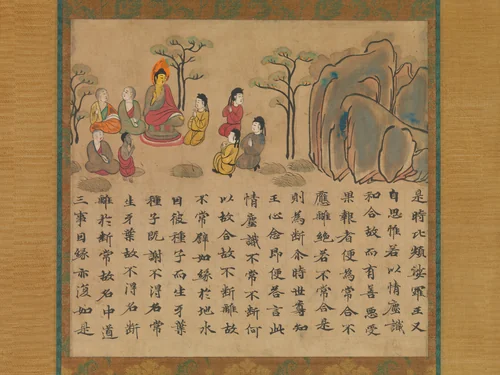 是時比頻娑羅王又
自思惟若以情塵識
和合故而有善惡受
果報者便為常合不
應離絕若不常合是
則為斷尒時世尊知
王心念即便荅言此
情塵識不常不斷何
以故合故不斷離故
不常譬如緣於地水
因彼種子而生牙葉
種子既謝不得名常
生牙葉故不得名斷
離於斷常故名中道
三事因緣亦復如是